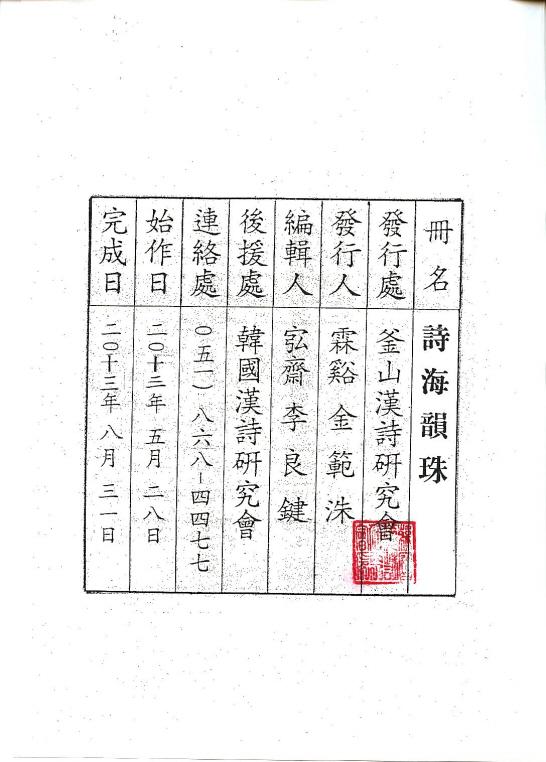 冊名 詩海韻珠
發行處 釜山漢詩硏究會
發行人 霖谿 金範洙
編輯人 宖齋 李良鍵
後援處 韓國漢詩硏究會
連絡處 (〇五一) 八六八-四四七七
始作日 二〇十三年 五月 二八日
完成日 二〇十三年 八月 三一日